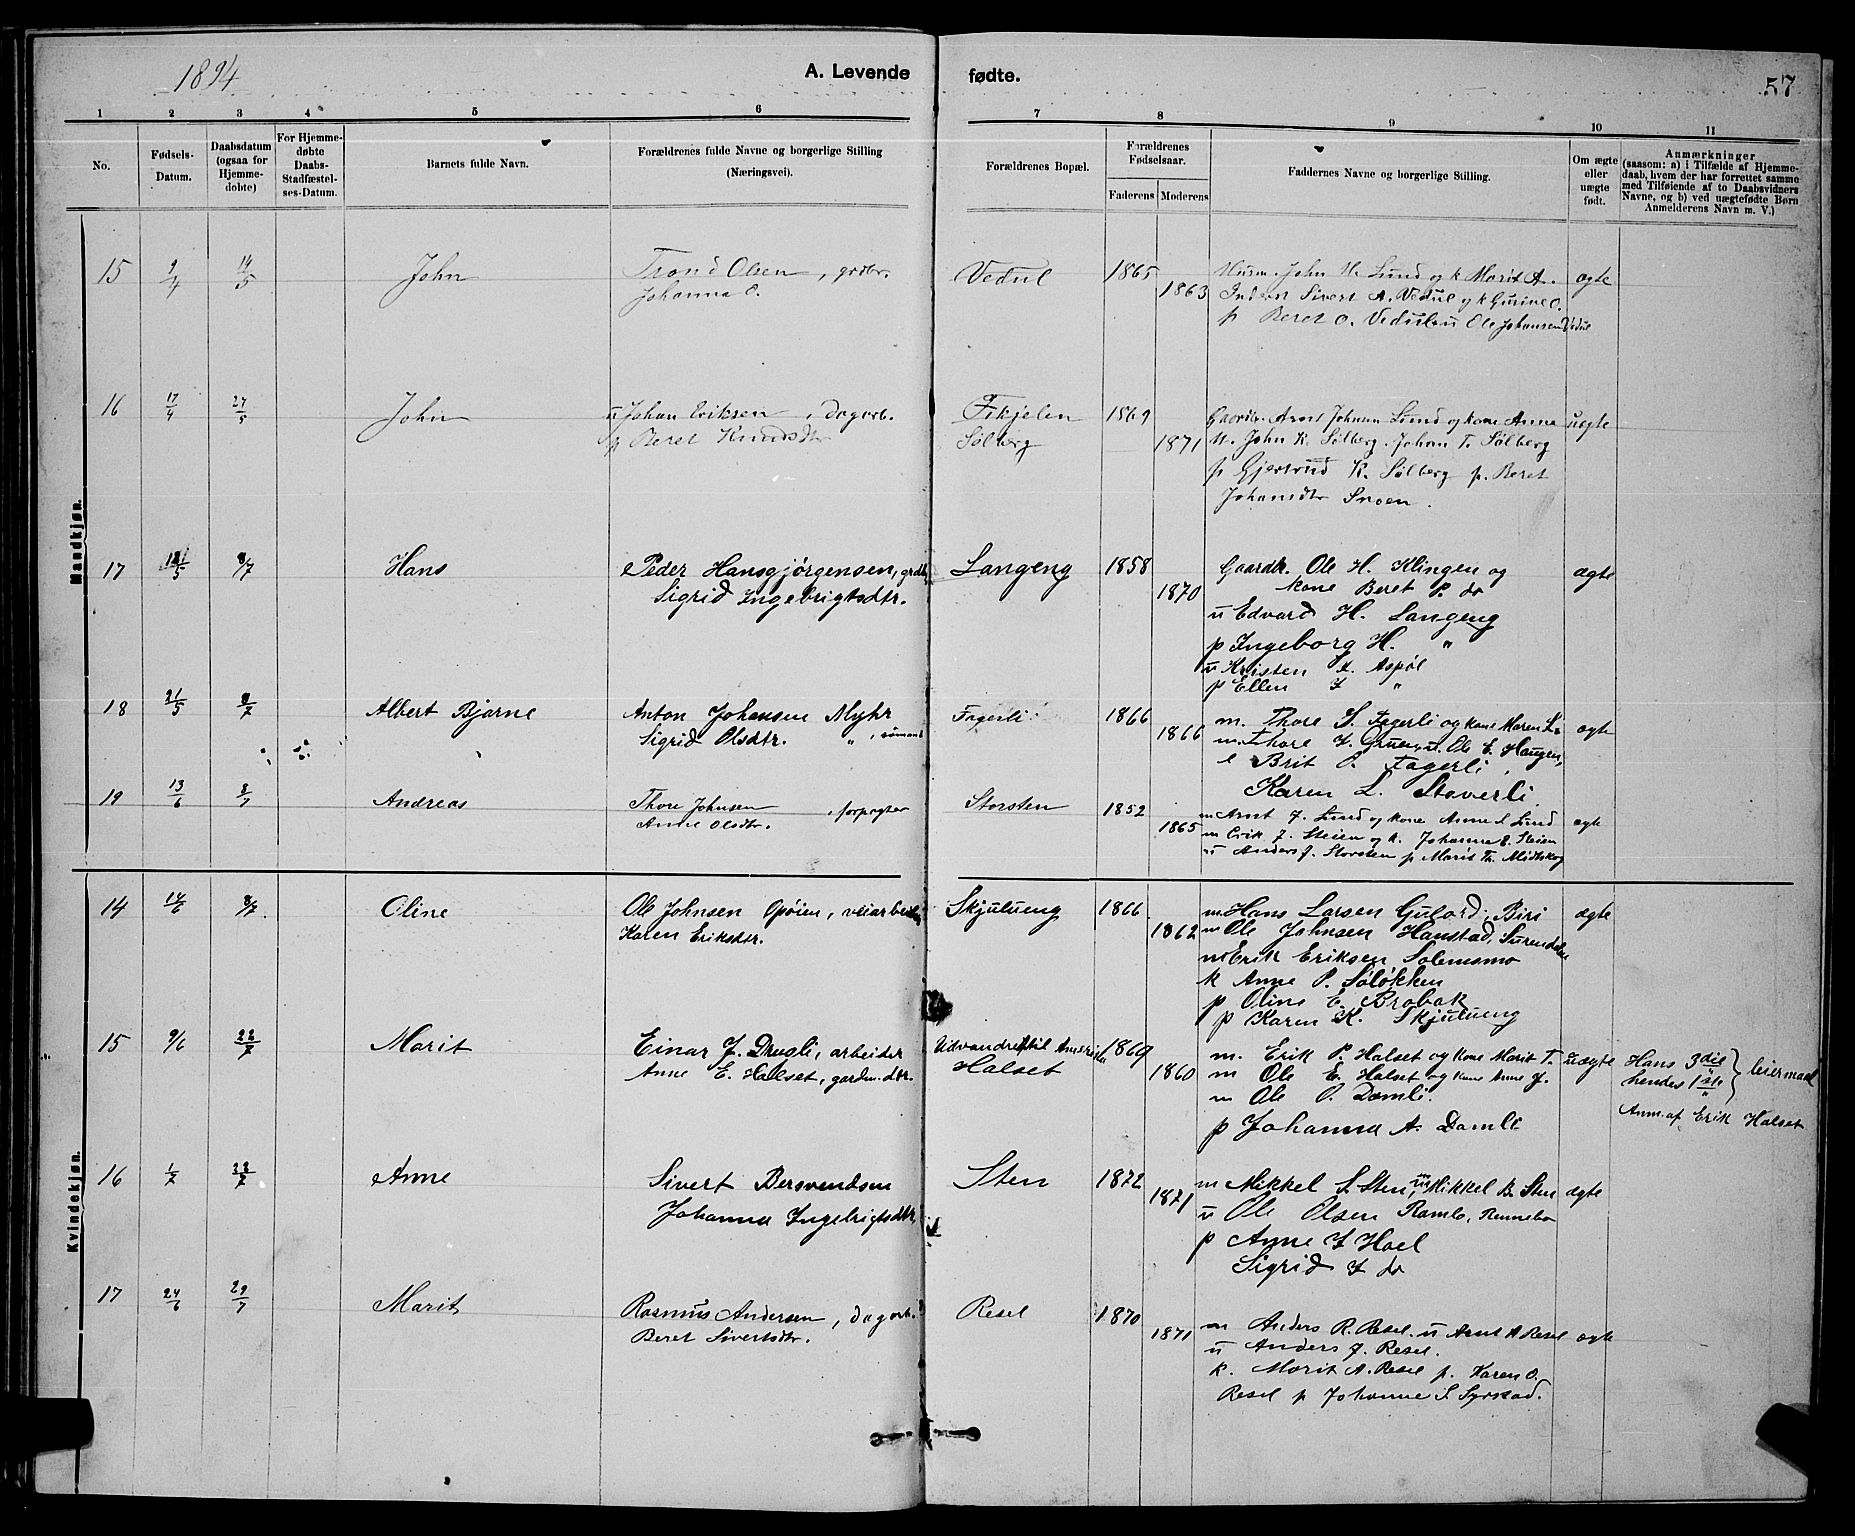 1894
A. Levende fødte.
57
1 2 3 4 5 6 7 8 9 10 11
No.
Fødsels-Datum.
Daabsdatum (ogsaa for Hjemme-døbte)
For Hjemme-døbte Daabs-Stadfæstel-ses-Datum.
Barnets fulde Navn.
Forældrenes fulde Navne og borgerlige Stilling (Næringsvei).
Forældrenes Bopæl.
Forældrenes Fødselsaar.
Faderens Moderens
Faddernes Navne og borgerlige Stilling.
Om ægte eller uægte født.
Anmærkninger
(saasom: a) i Tilfælde af Hjemme-
daab, hvem der har forrettet samme
med Tilføiende af to Daabsvidners
Navne, og b) ved uægtefødte Børn
Anmelderens Navn m. V.)
Mandkjøn.
15 9/4 14/5 John Trond Olsen, grdbr. Vedul 1865 Husm. John H. Lund og k Marit A. ægte
Johanna O. 1863 Inderst Sivert A. Vedul og k Gurine O.
p Beret O. Vedul Ole Johansen Vedul
16 17/4 27/5 John u Johan Eriksen, dagarb. 1869 Gaardbr. Arnt Johnsen Lund og kone Anna uegte
p Beret Knudsdtr Sølberg 1871 u. John K. Sølberg. Johan T. Sølberg
p Gjertrud K. Sølberg p. Beret
Johansdtr Snoen.
17 /5 8/7 Hans Peder Hansgjørgensen, grdbr. Langeng 1858 Gaardbr. Ole H. Klingen og ægte
Sigrid Ingebrigtsdtr. 1870 kone Beret P. do
u Edvard H. Langeng
p Ingeborg H. "
u Kristen I. Aspøl
p Ellen I "
18 21/5 8/7 Albert Bjarne Anton Johansen Myhr Fagerli 1866 m. Thore S. Fagerli og kone Maren ægte
Sigrid Olsdtr. " , sømand 1866 m. Thore I. Gruen, u. Ole E. Haugen,
Brit O. Fagerli,
Karen L. Stoverli
19 13/6 8/7 Andreas Thore Johnsen, forpagter Storsten 1852 m Arnt J. Lund og kone Anne Lund ægte
Anne Olsdtr. 1865 m Erik J. Steien og k. Johanna E. Steien
u Anders J. Storsten p Marit Th. Midtskog
Kvindekjøn.
14 14/6 8/7 Oline Ole Johnsen Opøien, veiarbeider Skjulueng 1866 m Hans Larsen Gulord, Biri ægte
Karen Eriksdtr. 1862 m Ole Johnsen Hanstad, Surendalen
m Erik Eriksen Solemsmo
k Anne P. Soløkken
p Oline E. Brobak
p Karen K. Skjulueng
15 9/6 22/7 Marit Einar J. Drugli, arbeider Udvandret til Amerika 1869 m. Erik P. Halset og kone Marit T. uægte Hans 3die
Anne E. Halset, gardm.dtr. Halset 1860 m Ole E. Halset og kone Anne J. hendes 1ste } leiermaal
m Ole O. Domli. Anm. af Erik Halset
p Johanna A. Domli
16 1/7 22/7 Anne Sivert Bersvendsen Sten 1872 m Mikkel S. Sten, m Mikkel B. Sten ægte
Johanna Ingebrigtsdtr. 1871 u Ole Olsen Ramlo, Rennebo
p Anne I Hoel
Sigrid I do
17 24/6 29/7 Marit Rasmus Andersen, dagarb. Resel 1870 m Anders R. Resel. u Arnt A Resel ægte
Beret Sivertsdtr. 1871 u Anders J. Resel.
k. Marit A. Resel p. Karen O.
Resel p Johanne S. Syrstad.